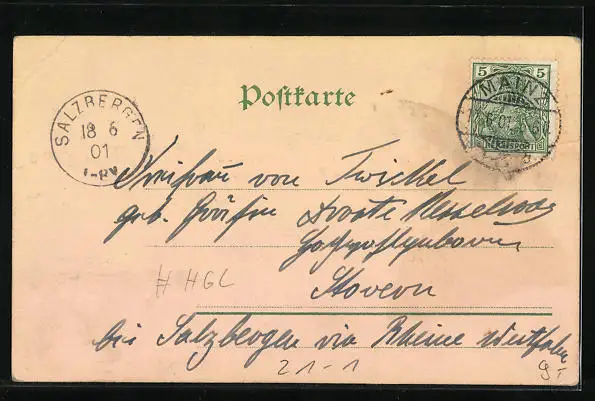 Postkarte
SALZBERGEN
18 6
01
5 5
MAIN
REICHSPOST
Freifrau von Twickel
geb. Gräfin Droste Nesselrode
Stovern
bei Salzbergen via Rheine Westfalen
# HGL
21-1